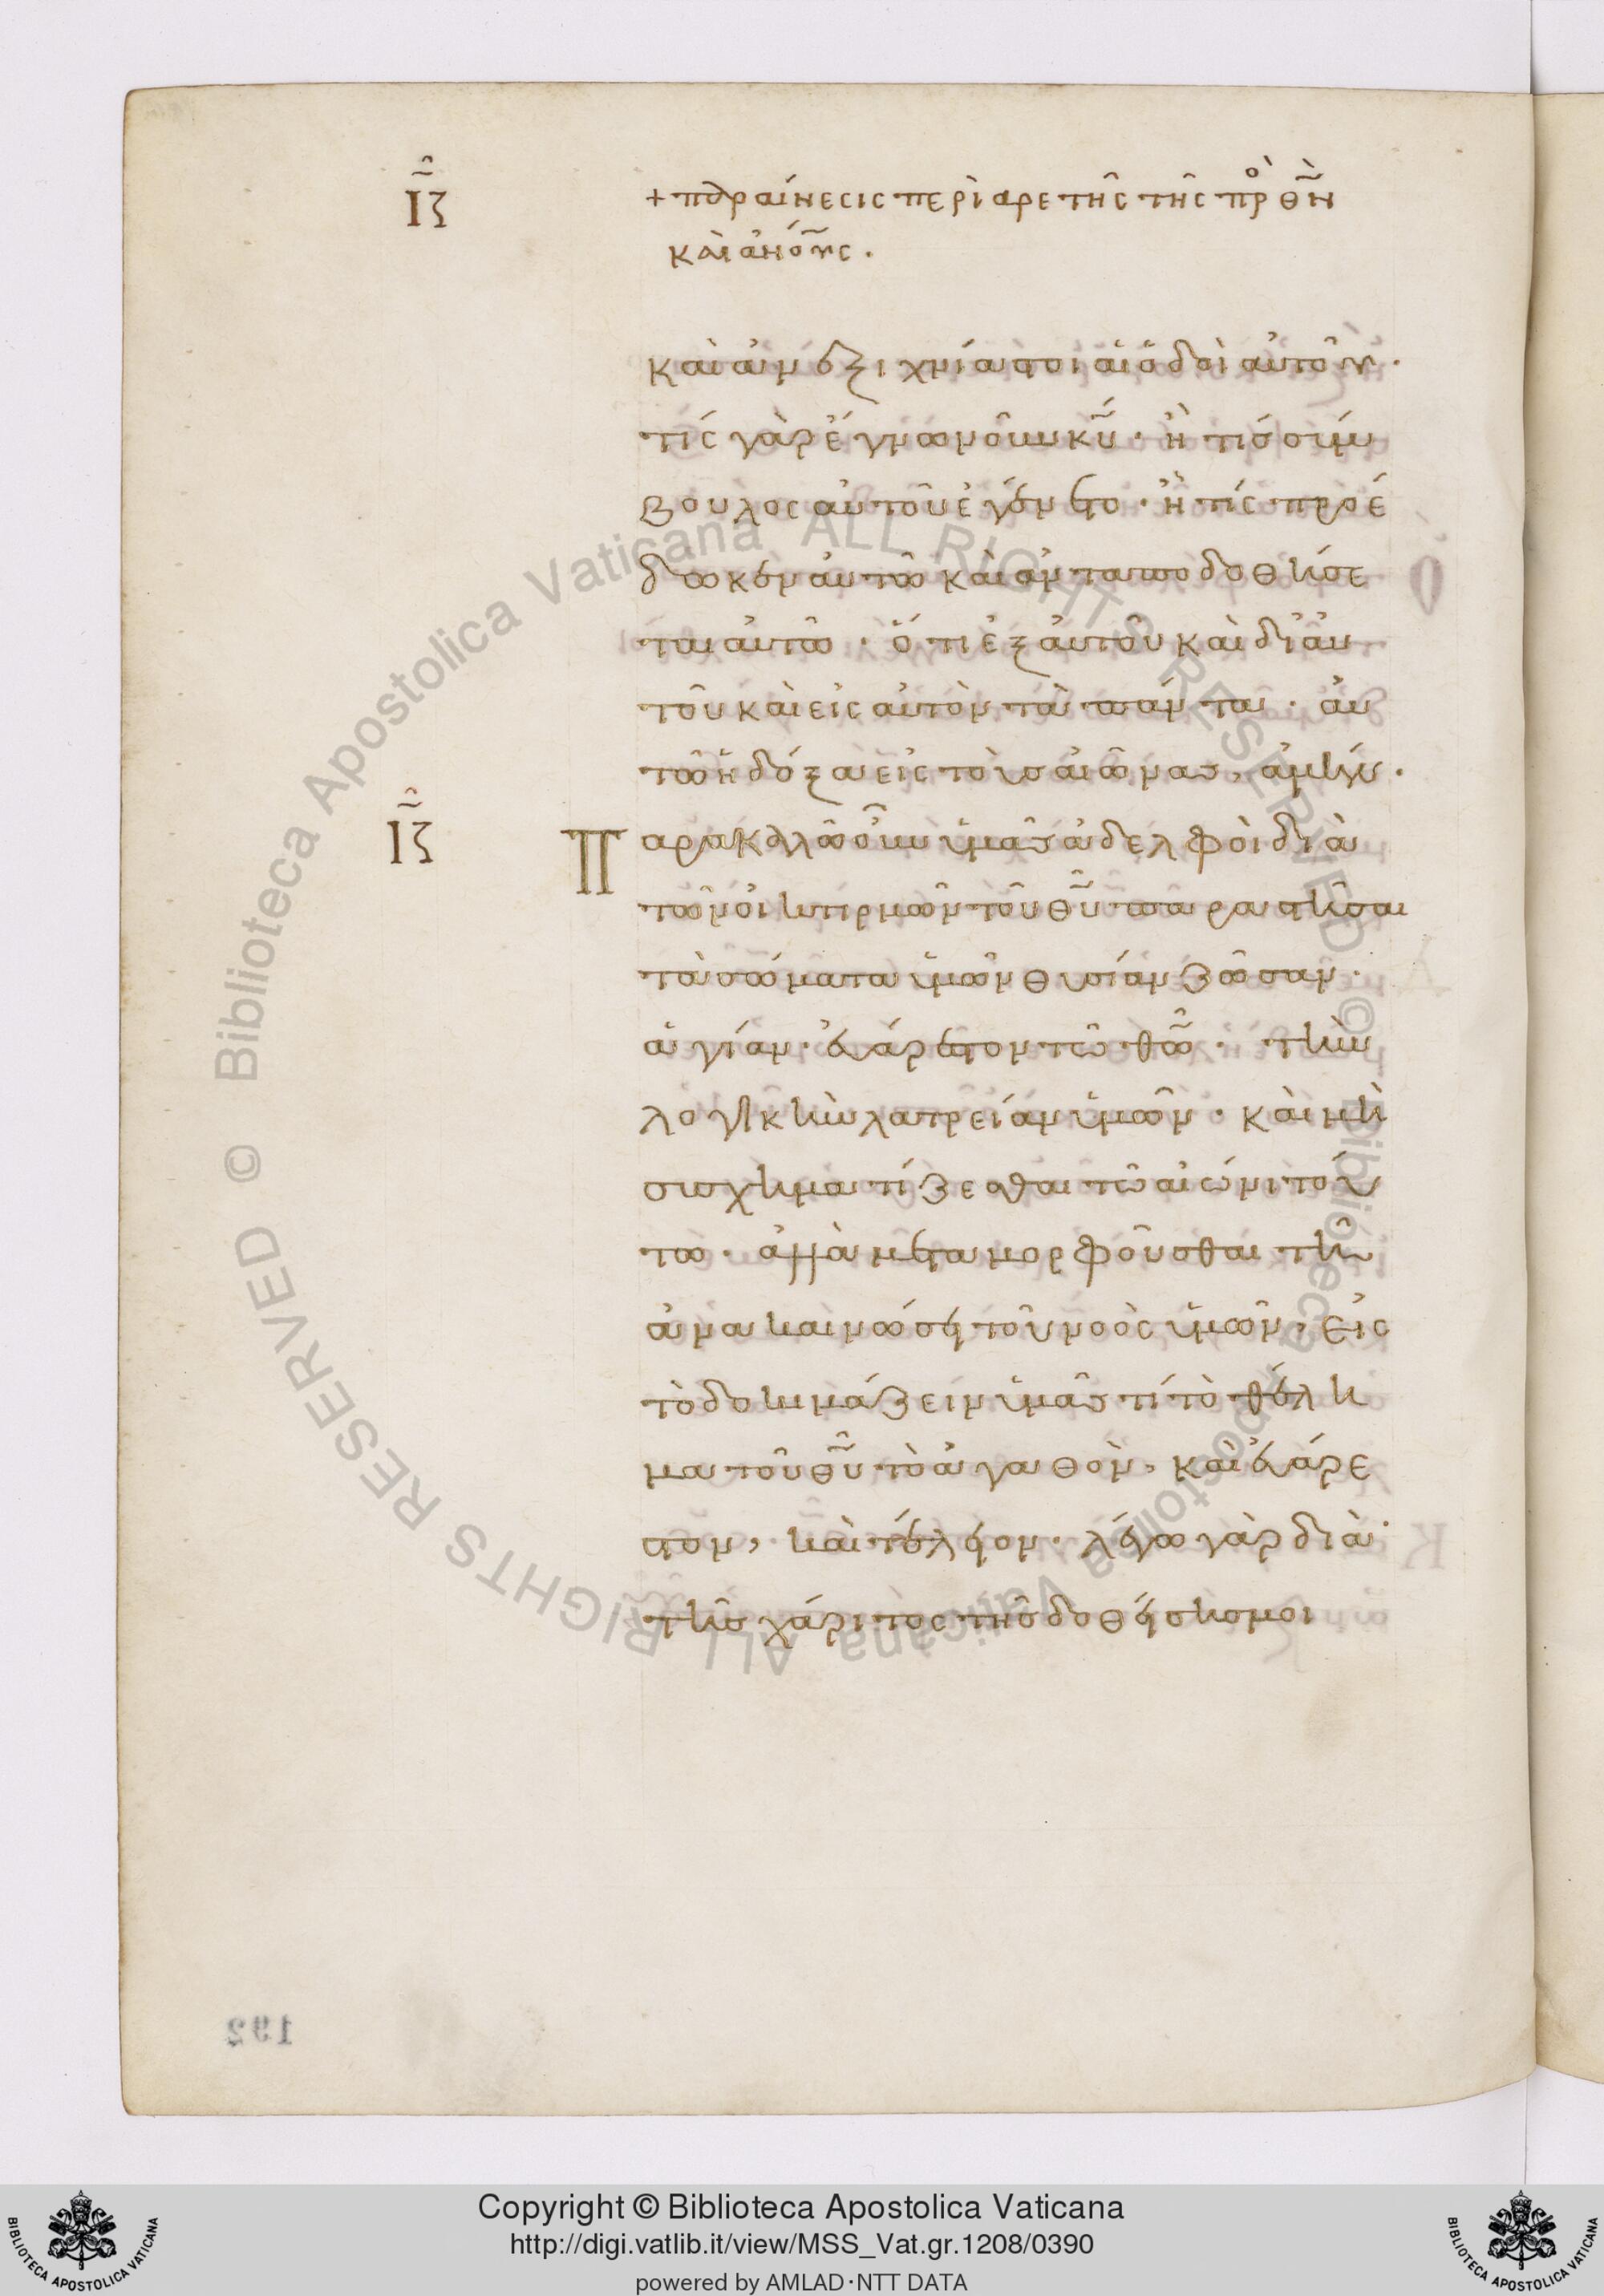 ΙΖ
+ παραίνεσις περὶ ἀρετῆς τῆς πρὸ θν̅
καὶ ἀνο̅υς.
καὶ ἀνεξιχνίαστοι αἱ ὁδοὶ αὐτοῦ.
τίς γὰρ ἔγνω νοῦν κυ̅. ἢ τίς σύμ
βουλος αὐτοῦ ἐγένετο. ἢ τίς προέ
δωκεν αὐτῶ καὶ ἀνταποδοθήσε
ται αὐτῶ. ὅτι ἐξ αὐτοῦ καὶ δι' αὐ
τοῦ καὶ εἰς αὐτὸν τὰ πάντα. αὐ
τῶ ἡ δόξα εἰς τοὺς αἰῶνας, ἀμήν.
ΙΖ
Παρακαλῶ οὖν ὑμᾶς ἀδελφοὶ διὰ
τῶν οἰκτιρμῶν τοῦ θυ̅ παραστῆσαι
τὰ σώματα ὑμῶν θυσίαν ζῶσαν.
ἁγίαν. εὐάρεστον τῶ θω̅. τὴν
λογικὴν λατρείαν ὑμῶν. καὶ μὴ
συσχηματίζεσθαι τῶ αἰώνι τού
τω. ἀλλὰ μεταμορφοῦσθαι τῆ
ἀνακαινώσει τοῦ νοὸς ὑμῶν, εἰς
τὸ δοκιμάζειν ὑμᾶς τί τὸ θέλη
μα τοῦ θυ̅ τὸ ἀγαθὸν, καὶ εὐάρε
στον, καὶ τέλειον. λέγω γὰρ διὰ
τῆς χάριτος τῆς δοθείσης μοι
192
Copyright © Biblioteca Apostolica Vaticana
http://digi.vatlib.it/view/MSS_Vat.gr.1208/0390
powered by AMLAD·NTT DATA
BIBLIOTECA APOSTOLICA VATICANA
BIBLIOTECA APOSTOLICA VATICANA
© Biblioteca Apostolica Vaticana ALL RIGHTS RESERVED
© Biblioteca Apostolica Vaticana ALL RIGHTS RESERVED